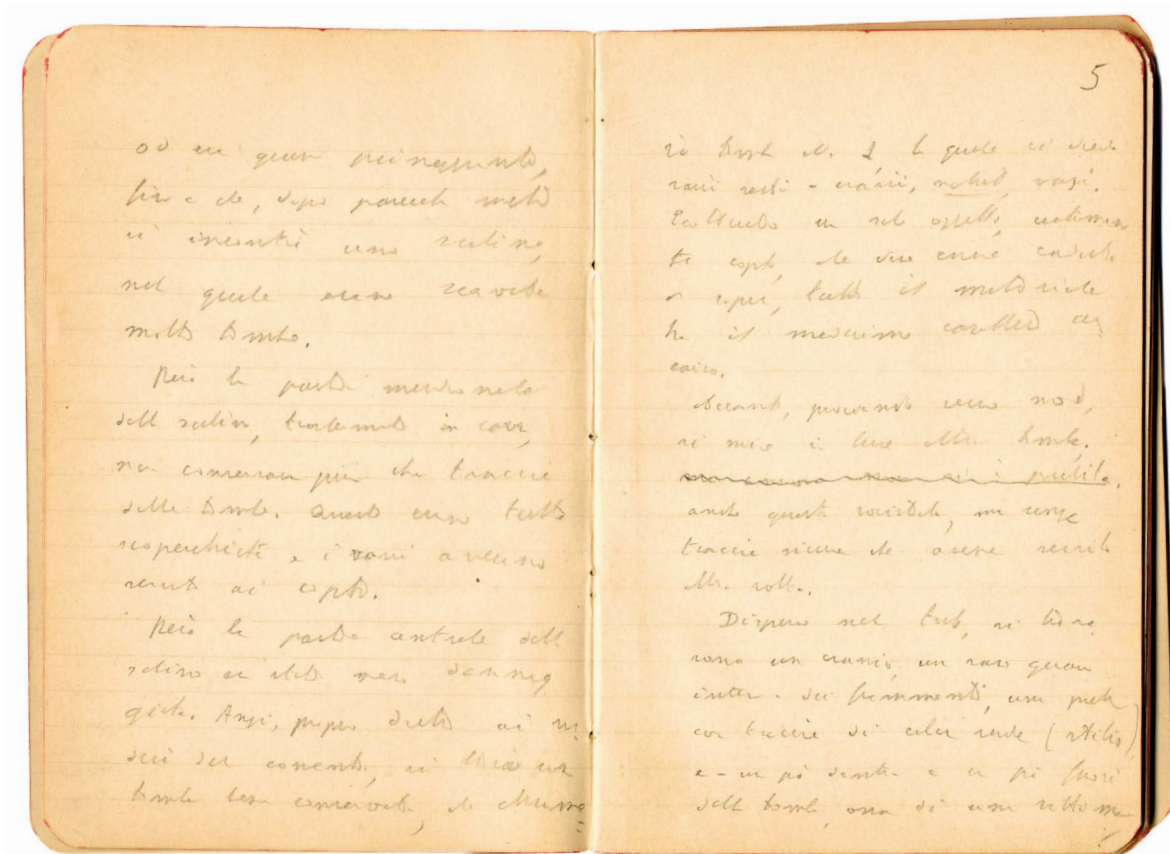 od era quasi
fin a che, dopo parecchi metri
si incontrò uno scalino,
nel quale erano scavate
molte tombe.
Però la parte meridionale
dello scalino, trasformato in cava,
non conservava più che traccie
delle tombe. Queste erano tutte
scoperchiate, e i vani avevano
servito ai copti.
Però la parte centrale dello
scalino era stata meno danneg
giata. Anzi, proprio sotto ai
del convento, si trovò una
tomba ben conservata, che
5
tomba N. 1 la quale ci diede
varii resti - cranii, vasi.
Eccettuato un solo oggetto, certamen
te copto, che deve essere caduto
tutto il materiale
ha il medesimo carattere ar
caico.
Accanto, procedendo verso nord,
si mise in luce altra tomba.
si è pulita.
anche questa violata, ma senza
traccie sicure che avesse servito
altra volta.
Disperso nel si trova
rono un cranio, un vaso quasi
intero e dei frammenti, una
con traccie di color verde
e - un po' dentro e un po' fuori
della tomba, ossa di una